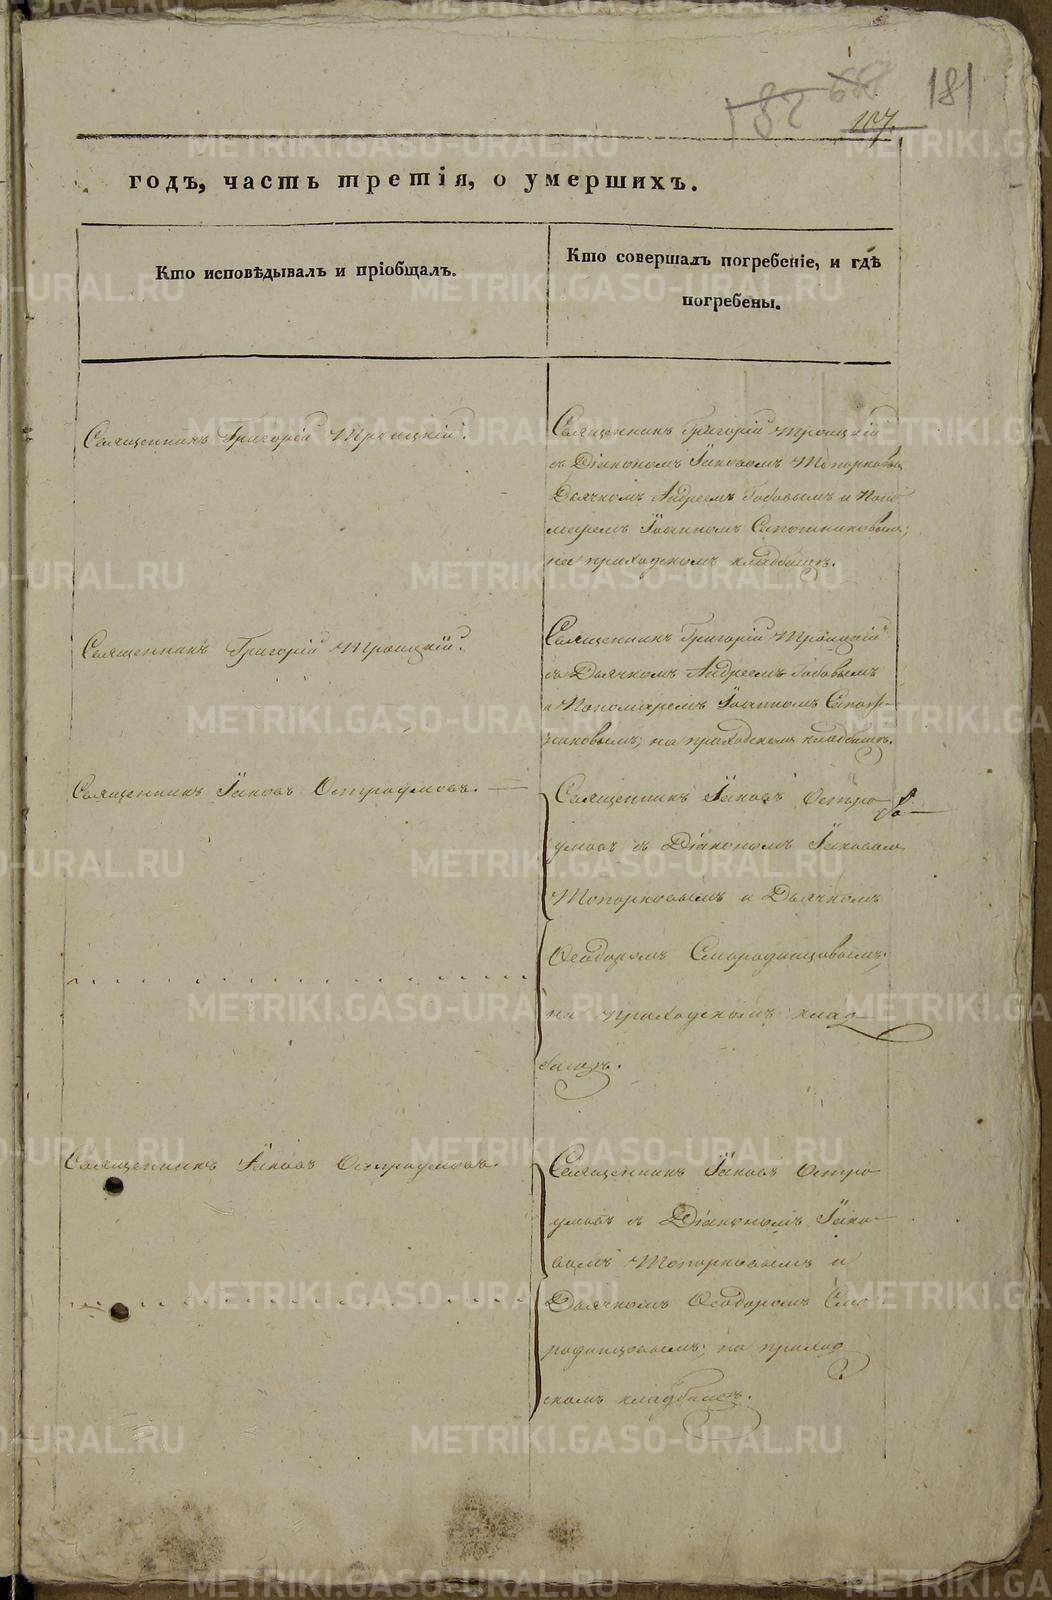 181
182
107.
годъ, часть третія, о умершихъ.
Кто исповѣдывалъ и пріобщалъ.
Кто совершалъ погребеніе, и гдѣ
погребены.
Священникъ Григорій Троицкій.
Священникъ Григорій Троицкій
съ Діакономъ Іаковомъ Топорковы
Дьячкомъ Андреемъ Бобовымъ и Поно
маремъ Іоанномъ Сапожниковымъ;
на приходскомъ кладбищѣ.
Священникъ Григорій Троицкій.
Священникъ Григорій Троицкій
съ Дьячкомъ Андреемъ Бобовымъ
и Пономаремъ Іоанномъ Сапож-
никовымъ; на приходскомъ кладбищѣ.
Священникъ Іаковъ Остроумовъ.
Священникъ Іаковъ Остро
умовъ съ Діакономъ Іаковомъ
Топорковымъ и Дьячкомъ
Ѳеодоромъ Смородинцовымъ;
на приходскомъ клад
бищѣ.
Священникъ Іаковъ Остроумовъ.
Священникъ Іаковъ Остро
умовъ съ Діакономъ Іако-
вомъ Топорковымъ и
Дьячкомъ Ѳеодоромъ Смо
родинцовымъ; на приход
скомъ кладбищѣ.
METRIKI.GASO-URAL.RU